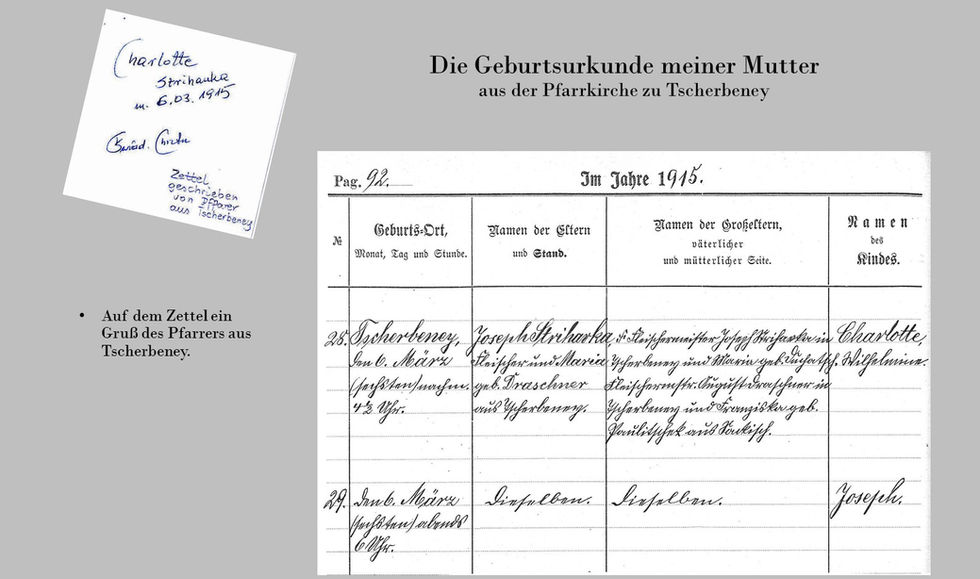 Charlotte
Strihavka
6.03.1915
Zettel
geschrieben
von Pfarrer
aus Tscherbeney
Die Geburtsurkunde meiner Mutter
aus der Pfarrkirche zu Tscherbeney
• Auf dem Zettel ein
Gruß des Pfarrers aus
Tscherbeney.
Pag. 92. Im Jahre 1915.
№
Geburts=Ort,
Monat, Tag und Stunde.
Namen der Eltern
und Stand.
Namen der Großeltern,
väterlicher
und mütterlicher Seite.
Namen
des
Kindes.
28. Tscherbeney, Joseph Strihavka, Fleischermeister Joseph Strihavka in Charlotte,
den 6. März Fleischer und Maria Tscherbeney und Maria geb. Wilhelmine.
(sechsten) nachm. geb. Draschner Fleischermstr. August Draschner in
4½ Uhr. aus Tscherbeney. Tscherbeney und Franziska geb.
Paulitschek aus Sackisch.
29. den 6. März Dieselben. Dieselben. Joseph.
(sechsten) abends
6 Uhr.